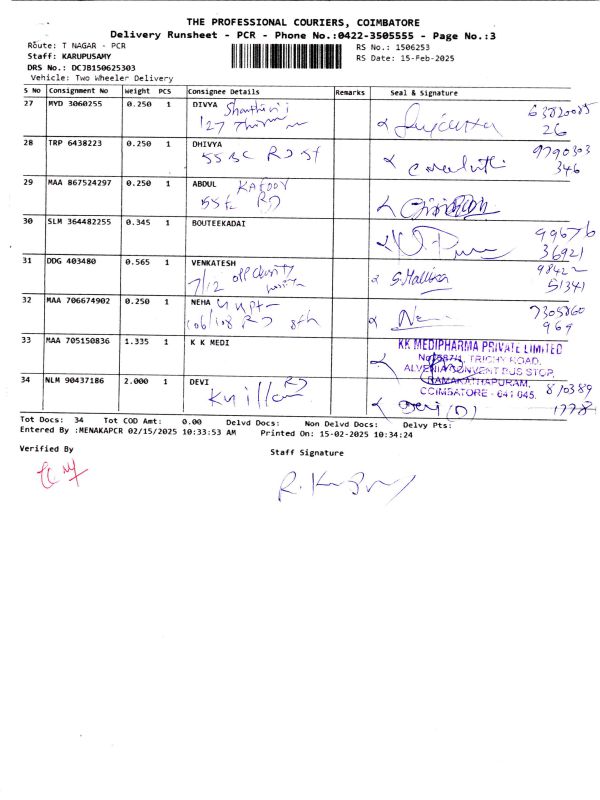 THE PROFESSIONAL COURIERS, COIMBATORE
Delivery Runsheet - PCR - Phone No.:0422-3505555 - Page No.:3
Route: T NAGAR - PCR
RS No.: 1506253
Staff: KARUPUSAMY
RS Date: 15-Feb-2025
DRS No.: DCJB150625303
Vehicle: Two Wheeler Delivery
S No Consignment No Weight PCS Consignee Details Remarks Seal & Signature
27 MYD 3060255 0.250 1 DIVYA
127
26
28 TRP 6438223 0.250 1 DHIVYA
55 BC RD St
9790303
346
29 MAA 867524297 0.250 1 ABDUL Kafoor
RD
30 SLM 364482255 0.345 1 BOUTEEKADAI
99676
36921
31 DDG 403480 0.565 1 VENKATESH
7/12 opp
S. Malliga
98422
51341
32 MAA 706674902 0.250 1 NEHA Gupta
106/108 RD 8th
7305860
969
33 MAA 705150836 1.335 1 K K MEDI
KK MEDIPHARMA PRIVATE LIMITED
TRICHY ROAD,
ALVERNIA CONVENT BUS STOP,
RAMANATHAPURAM,
COIMBATORE - 641 045.
34 NLM 90437186 2.000 1 DEVI RD
Devi (D)
810389
1778
Tot Docs: 34 Tot COD Amt: 0.00 Delvd Docs: Non Delvd Docs: Delvy Pts:
Entered By :MENAKAPCR 02/15/2025 10:33:53 AM Printed On: 15-02-2025 10:34:24
Verified By
Staff Signature